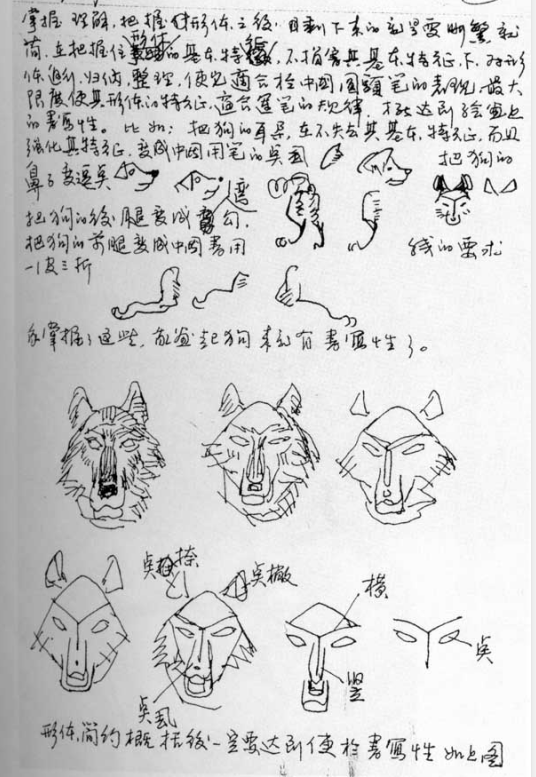 掌握理解,把握住形体之后,目剩下来的就是要删繁就
简,在把握住形体的基本特征,不损害其基本特征下,对形
体进行归纳整理,使它适合于中国画毛笔的表现,最大
限度使其形体的特征,适合运笔的规律,才能达到绘画上
的书写性。比如:把狗的耳朵,在不失去其基本特征,而且
强化其特征,变成中国用笔的点
把狗的
鼻子变
把狗的後腿变成弯勾,
把狗的前腿变成中国书用
线的要求
一波三折
掌握了这些,能画起狗来就有书写性了。
点捺
点撇
横
点
竖
点
形体简约概括後一定要达到便於书写性如上图